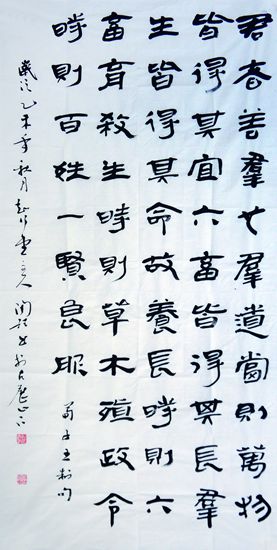 君者善羣也羣道當則萬物
皆得其宜六畜皆得其長羣
生皆得其命故養長時則六
畜育殺生時則草木殖政令
時則百姓一賢良服
荀子王制句
歲次乙未年秋月 堂主人 書於 山下